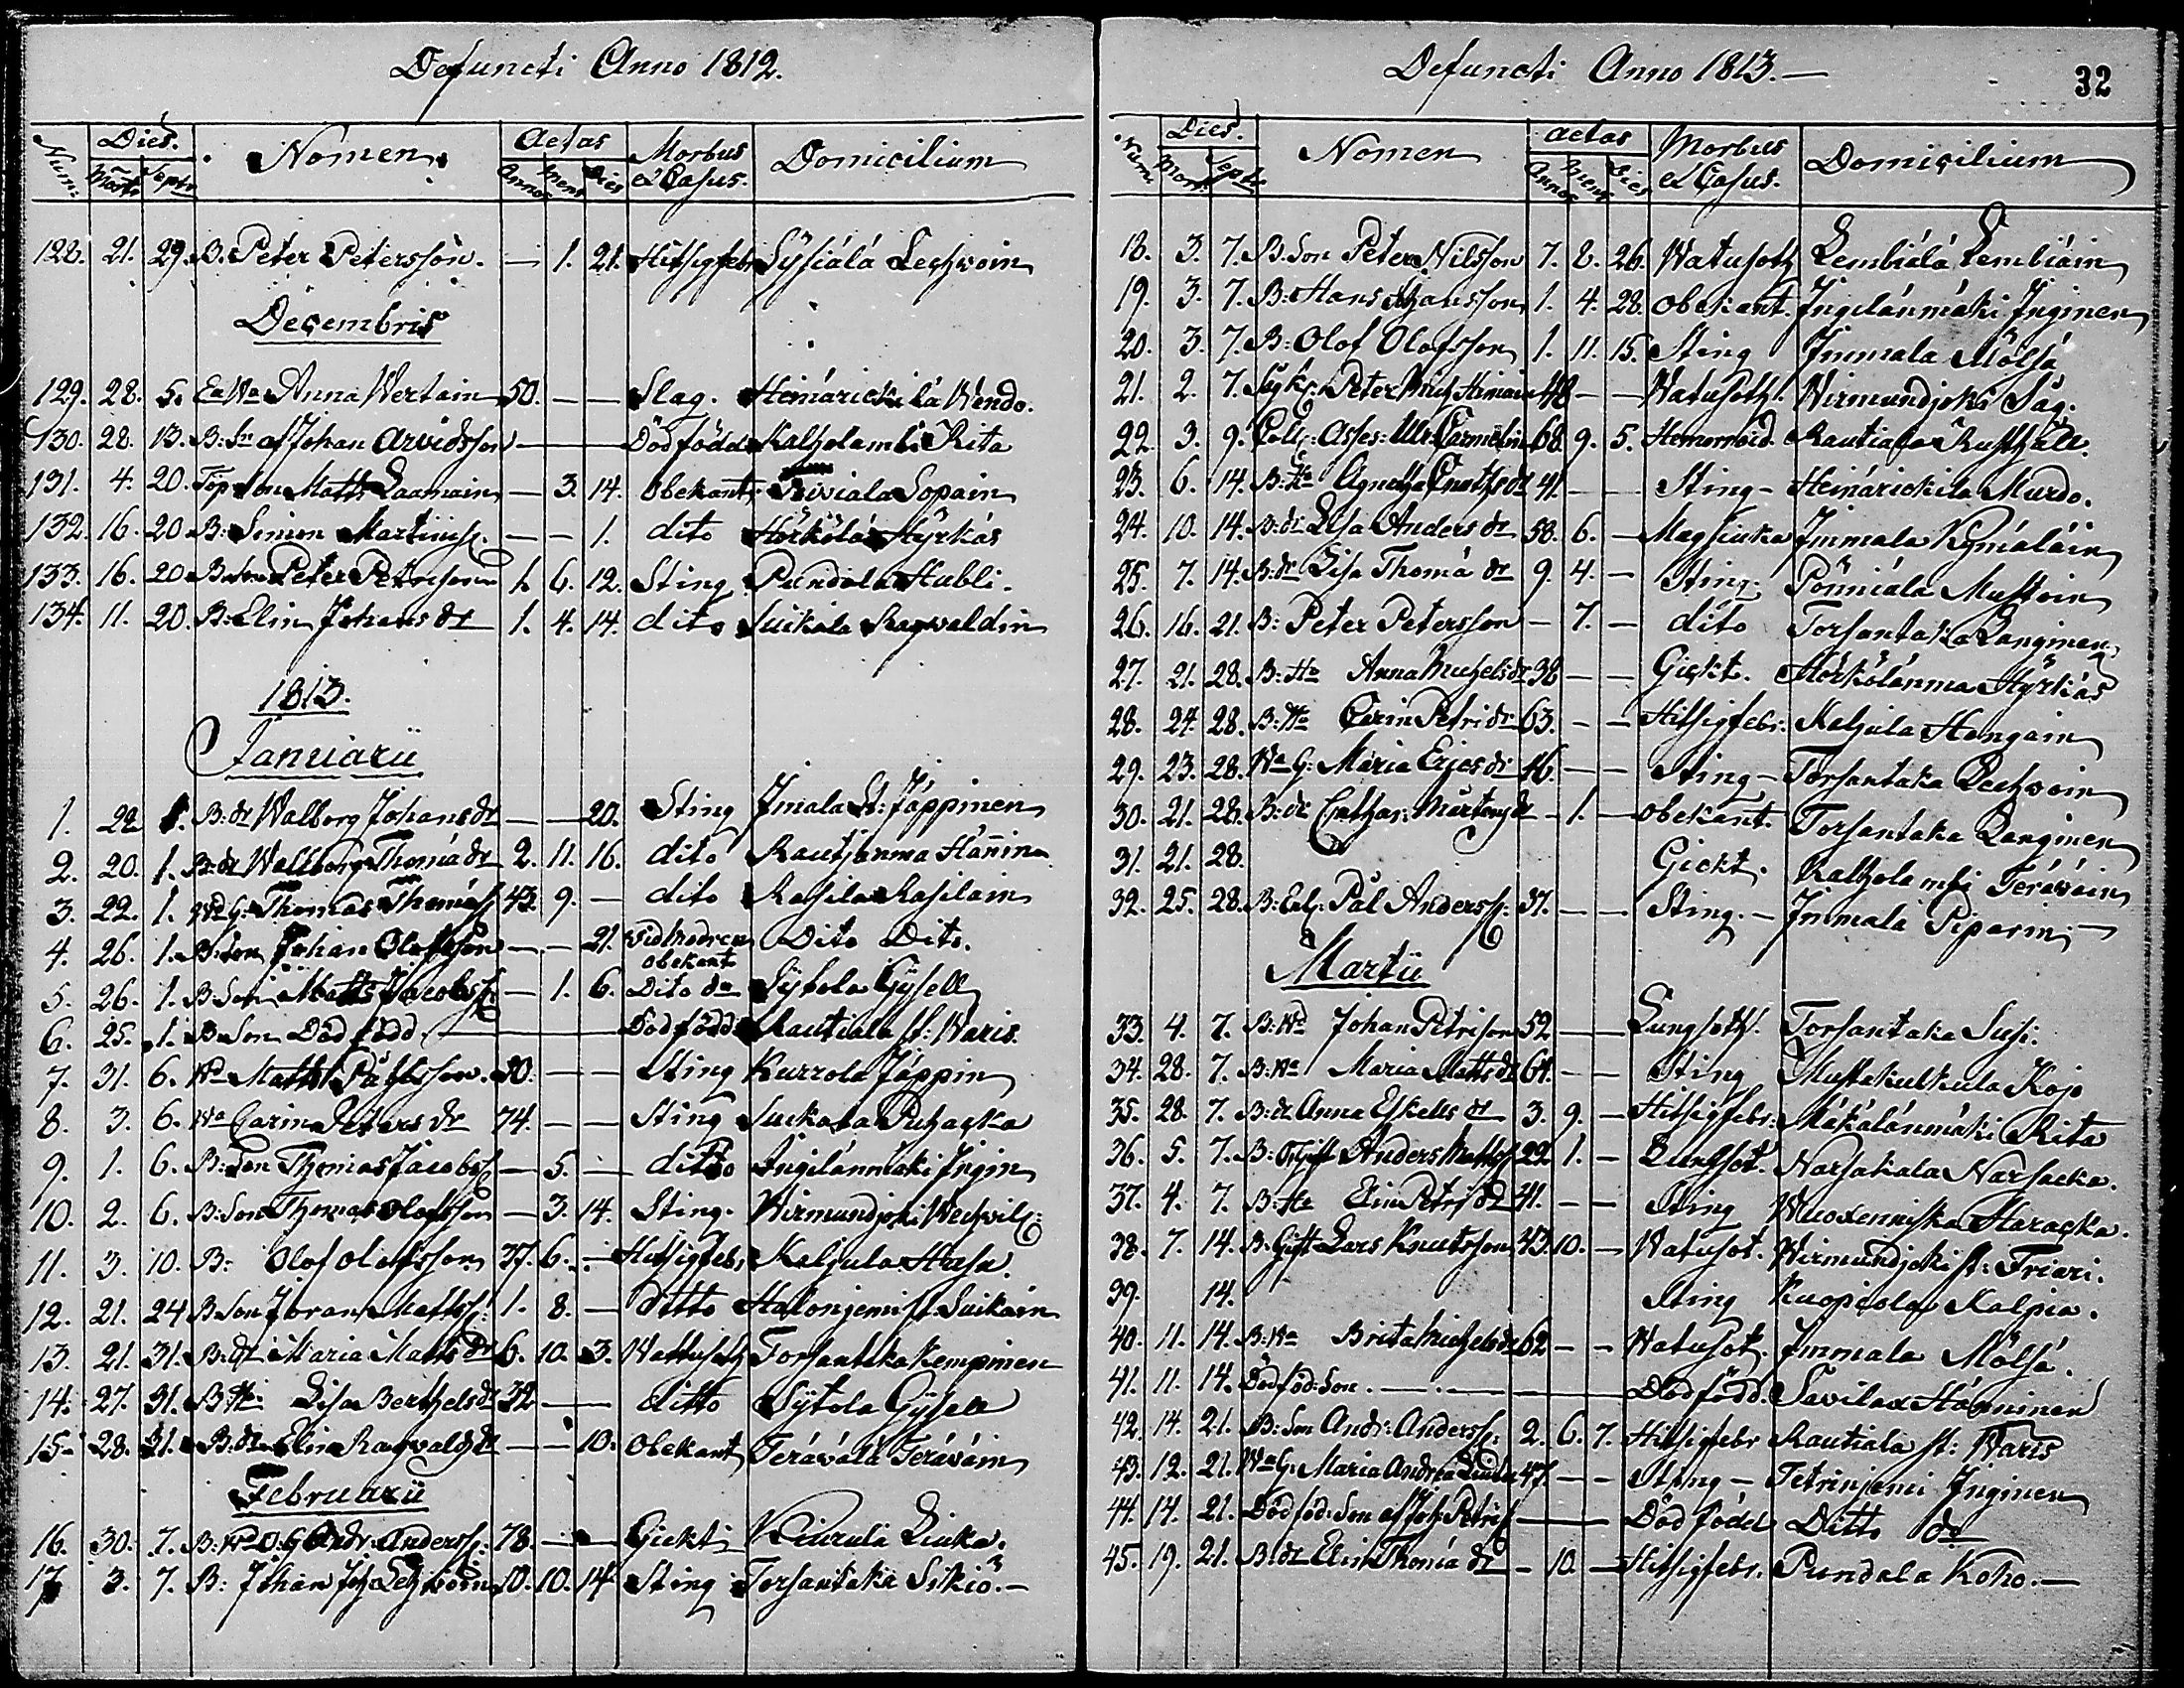 Defuncti Anno 1812.
Num: Dies. Nomen. Aetas Morbus Domicilium
Mort: Sept: Annos Mens Dies et Casus.
128. 21. 29. B. Peter Petersson. — 1. 21. Hitsigfebr Sysiälä Lechvoin
Decembris
129. 28. 5. Ea Wa Anna Wertain 50. — — Slag. Heinärickilä Wendo.
130. 28. 13. B: Sn af Johan Arvidsson — Dödfödd Kalholamäki Rita
131. 4. 20. Torp son Matts Laamain — 3. 14. Obekant Siviala Sopain
132. 16. 20 B: Simon Martinss. — — 1. dito Hörkölä Hyrkäs
133. 16. 20 B. Son Peter Petrisson 1. 6. 12. Sting Pundola Hubli.
134. 11. 20. B: Elin Johans dr 1. 4. 14. dito Suikala Ragvaldin
1813.
Januarii
1. 22 1. B: dr Walborg Johans dr — — 20. Sting Imala St: Jäppinen
2. 20. 1. B: dr Wallborg Thomä dr 2. 11. 16. dito Rautjänma Hänin
3. 22. 1. Wd G. Thomas Thomäss 43. 9. — dito Rasila Rasilain
4. 26. 1. B: Son Johan Olofsson — — 21. Vid Modren Dito Dito.
obekant
5. 26. 1. B. Son Matts Jacobss. — 1. 6. Dito do Sytola Gysell
6. 25. 1. B Son Död född — Dödfödd Rautiala st: Waris.
7. 31. 6. Wd Matts Påhlsson. 80. — — Sting Kurrola Jäppin
8. 3. 6. Wa Carin Peters dr 74. — — Sting Suikala Puhacka
9. 1. 6. B: Son Thomas Jacobss — 5. — ditto Ingilänmäki Ingin
10. 2. 6. B: Son Thomas Olofsson — 3. 14. Sting. Wirmundjoki Wechvil
11. 3. 10. B: Olof Olofsson 37. 6. — Hitsigfebr Kaljula Hasu.
12. 21. 24 B Son Jöran Mattss: 1. 8. — ditto Hakonjemi st Suikain
13. 21. 31. B: dr Maria Matts dr 6. 10. 3. Wattusoth Torsantaka Kempinen
14. 27. 31. B Ha Lisa Berthels dr 32 — ditto Sytola Gysell
15. 28. 31. B. dr Elin Ragvalds dr — — 10. Obekant Terävälä Teräväin
Februarii
16. 30. 7. B: Wd O: G Andr: Anderss: 78. — — Gickt Kiurula Liuka.
17 3. 7. B: Johan Joh: Lechvoin 10. 10. 14 Sting Torsantaka Sikiö. —
Defuncti Anno 1813. —
32
Num: Dies. Nomen aetas Morbus Domicilium
Mort: Sept: Annos Mens Dies et Casus.
18. 3. 7. B. Son Peter Nilsson 7. 8. 26. Watusoth Lembiälä Lembiäin
19. 3. 7. B: Hans Hansson 1. 4. 28. Obekant. Ingilänmäki Inginen
20. 3. 7. B: Olof Olofsson 1. 11. 15. Sting Immala Mölsä
21. 2. 7. Peter Mich: 48 — — Watusoth. Wirmundjoki Såg.
22. 3. 9. Coll: Asses: Ulr: 68. 9. 5. Hemorroid. Rautiala Rusthåll.
23. 6. 14. B: Ha Agnetha Cnuths dr 41. — — Sting — Heinärickilä Murdo.
24. 10. 14. B: dr Lisa Anders dr 58. 6. — Magsiuka Immala Kymäläin
25. 7. 14. B: dr Lisa Thomä dr 9. 4. — Sting. Pönniälä Mustoin
26. 16. 21. B: Peter Petersson — 7. — dito Torsantaka Langinen
27. 21. 28. B: Ha Anna Michels dr 38 — — Gickt. Hörkölänma Hyrkäs
28. 24 28. B: Ha Carin Petri dr 63. — — Hitsigfebr: Kaljula Hangain
29. 23. 28. Wa G: Maria Erics dr 46. — — Sting — Torsantaka Lechvoin
30. 21. 28. B: dr Cathar: Mårtens dr — 1. — obekant. Torsantaka Langinen
31. 21. 28. Gickt. Kalhola mäki Teräväin
32. 25. 28. B: Pål Anderss: 37. — — Sting. — Immala Piparin —
Martii
33. 4. 7. B: Wd Johan Petrisson 52 — — Lungsoth. Torsantaka Susi.
34. 28. 7. B: Wa Maria Matts dr 64. — — Sting Mustakulkula Kojo
35. 28. 7. B: dr Anna Eskells dr 3. 9. — Hitsigfebr: Mäkälänmäki Rita
36. 5. 7. B: Anders Mattss 22 1. — Lunksot. Narsakala Narsacka.
37. 4. 7. B: Ha Elin Petri dr 41. — — Sting Wuoxenniska Haracka.
38. 7. 14. B. Gift Lars Knutsson 43. 10. — Watusot. Wirmundjoki st: Friari.
39. 14. Sting Kuopiola Kalpia.
40. 11. 14. B: Wa Brita Michels dr 62 — — Watusot. Immala Mölsä.
41. 11. 14. Dödföd: Son. — Dödfödd. Savilax Hänninen
42. 14. 21. B: Son Andr: Anderss: 2. 6. 7. Hitsigfebr Rautiala st: Waris
43. 12. 21. Wa G. Maria Andrea 47. — — Sting — Tetrinjemi Inginen
44. 14. 21. Dödföd: Son af Joh: Petris — Död född Ditto do
45. 19. 21. B: dr Elin Thomä dr — 10. — Hitsigfebr. Pundala Koho. —